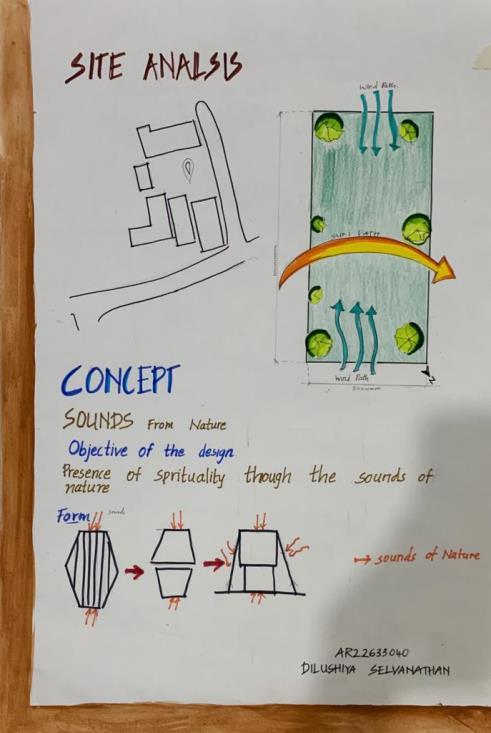 SITE ANALSIS
Wind Path.
SUN PATH
Wind Path
N
CONCEPT
SOUNDS From Nature
Objective of the design
Presence of sprituality though the sounds of
nature
Form
sounds
→ sounds of Nature
AR22633040
DILUSHIYA SELVANATHAN